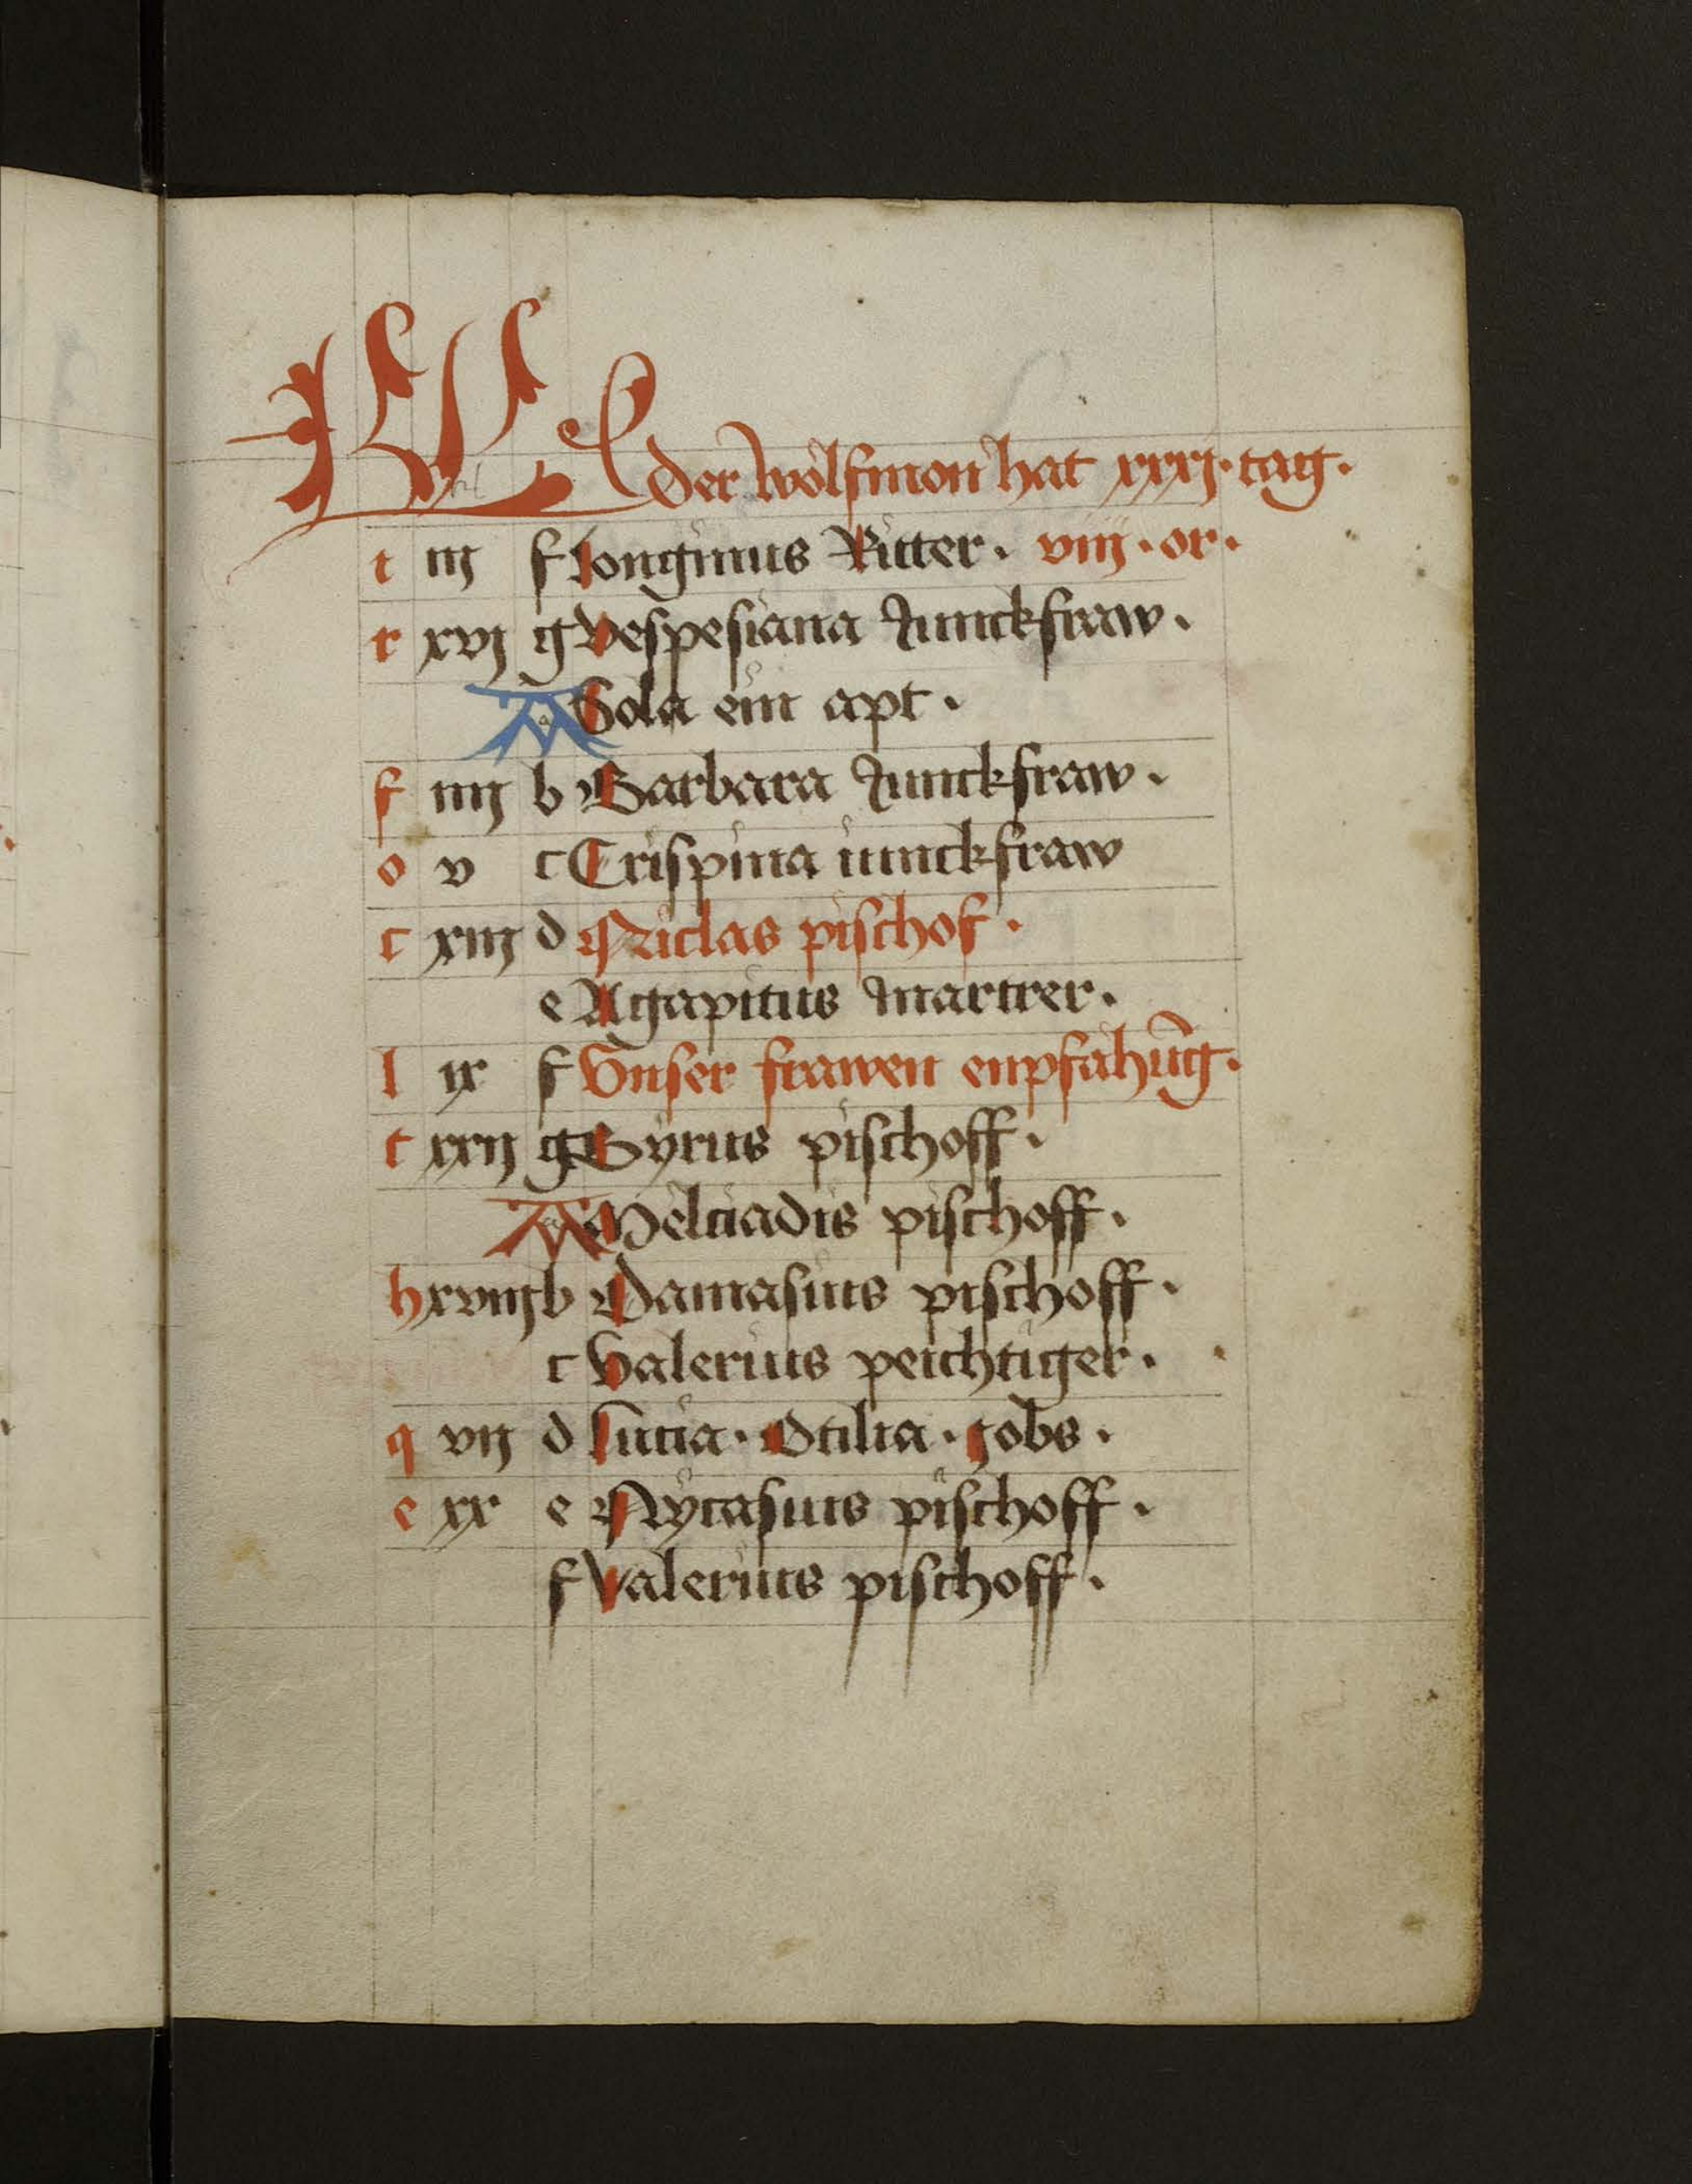 KL der wolfmon hat xxxj · tag ·
t iij f Longinus Ritter · viij · or ·
r xvj g Vespesiana Junckfraw ·
A Sola ein apt ·
f iiij b Barbara Junckfraw ·
o v c Crispina iunckfraw
c xiij d Niclas pischof ·
e Agapitus martrer ·
l ix f Vnser frawen enpfahūg ·
t xxij g Syrus pischoff ·
A Melciadis pischoff ·
h xviij b Damasius pischoff ·
c Valerius peichtiger ·
q vij d Lucia · Otilia · Jobs ·
e xx e Nycasius pischoff ·
f Valerius pischoff ·